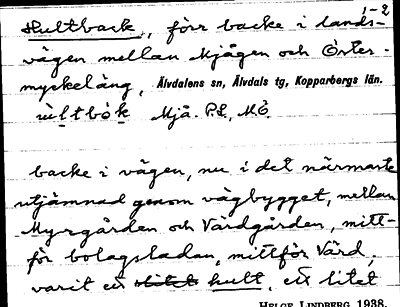 1-2
Hultback, förr backe i lands-
vägen mellan Mjågen och Öster-
myckeläng, Älvdalens sn, Älvdals tg, Kopparbergs län.
Mjå. P.S., M.Ö.
backe i vägen, nu i det närmaste
utjämnad genom vägbygget, mellan
Myrgården och Vårdgården, mitt-
för bolagsladan, mittför Vård,
varit ett hult, ett litet
HELGE LINDBERG 1938.